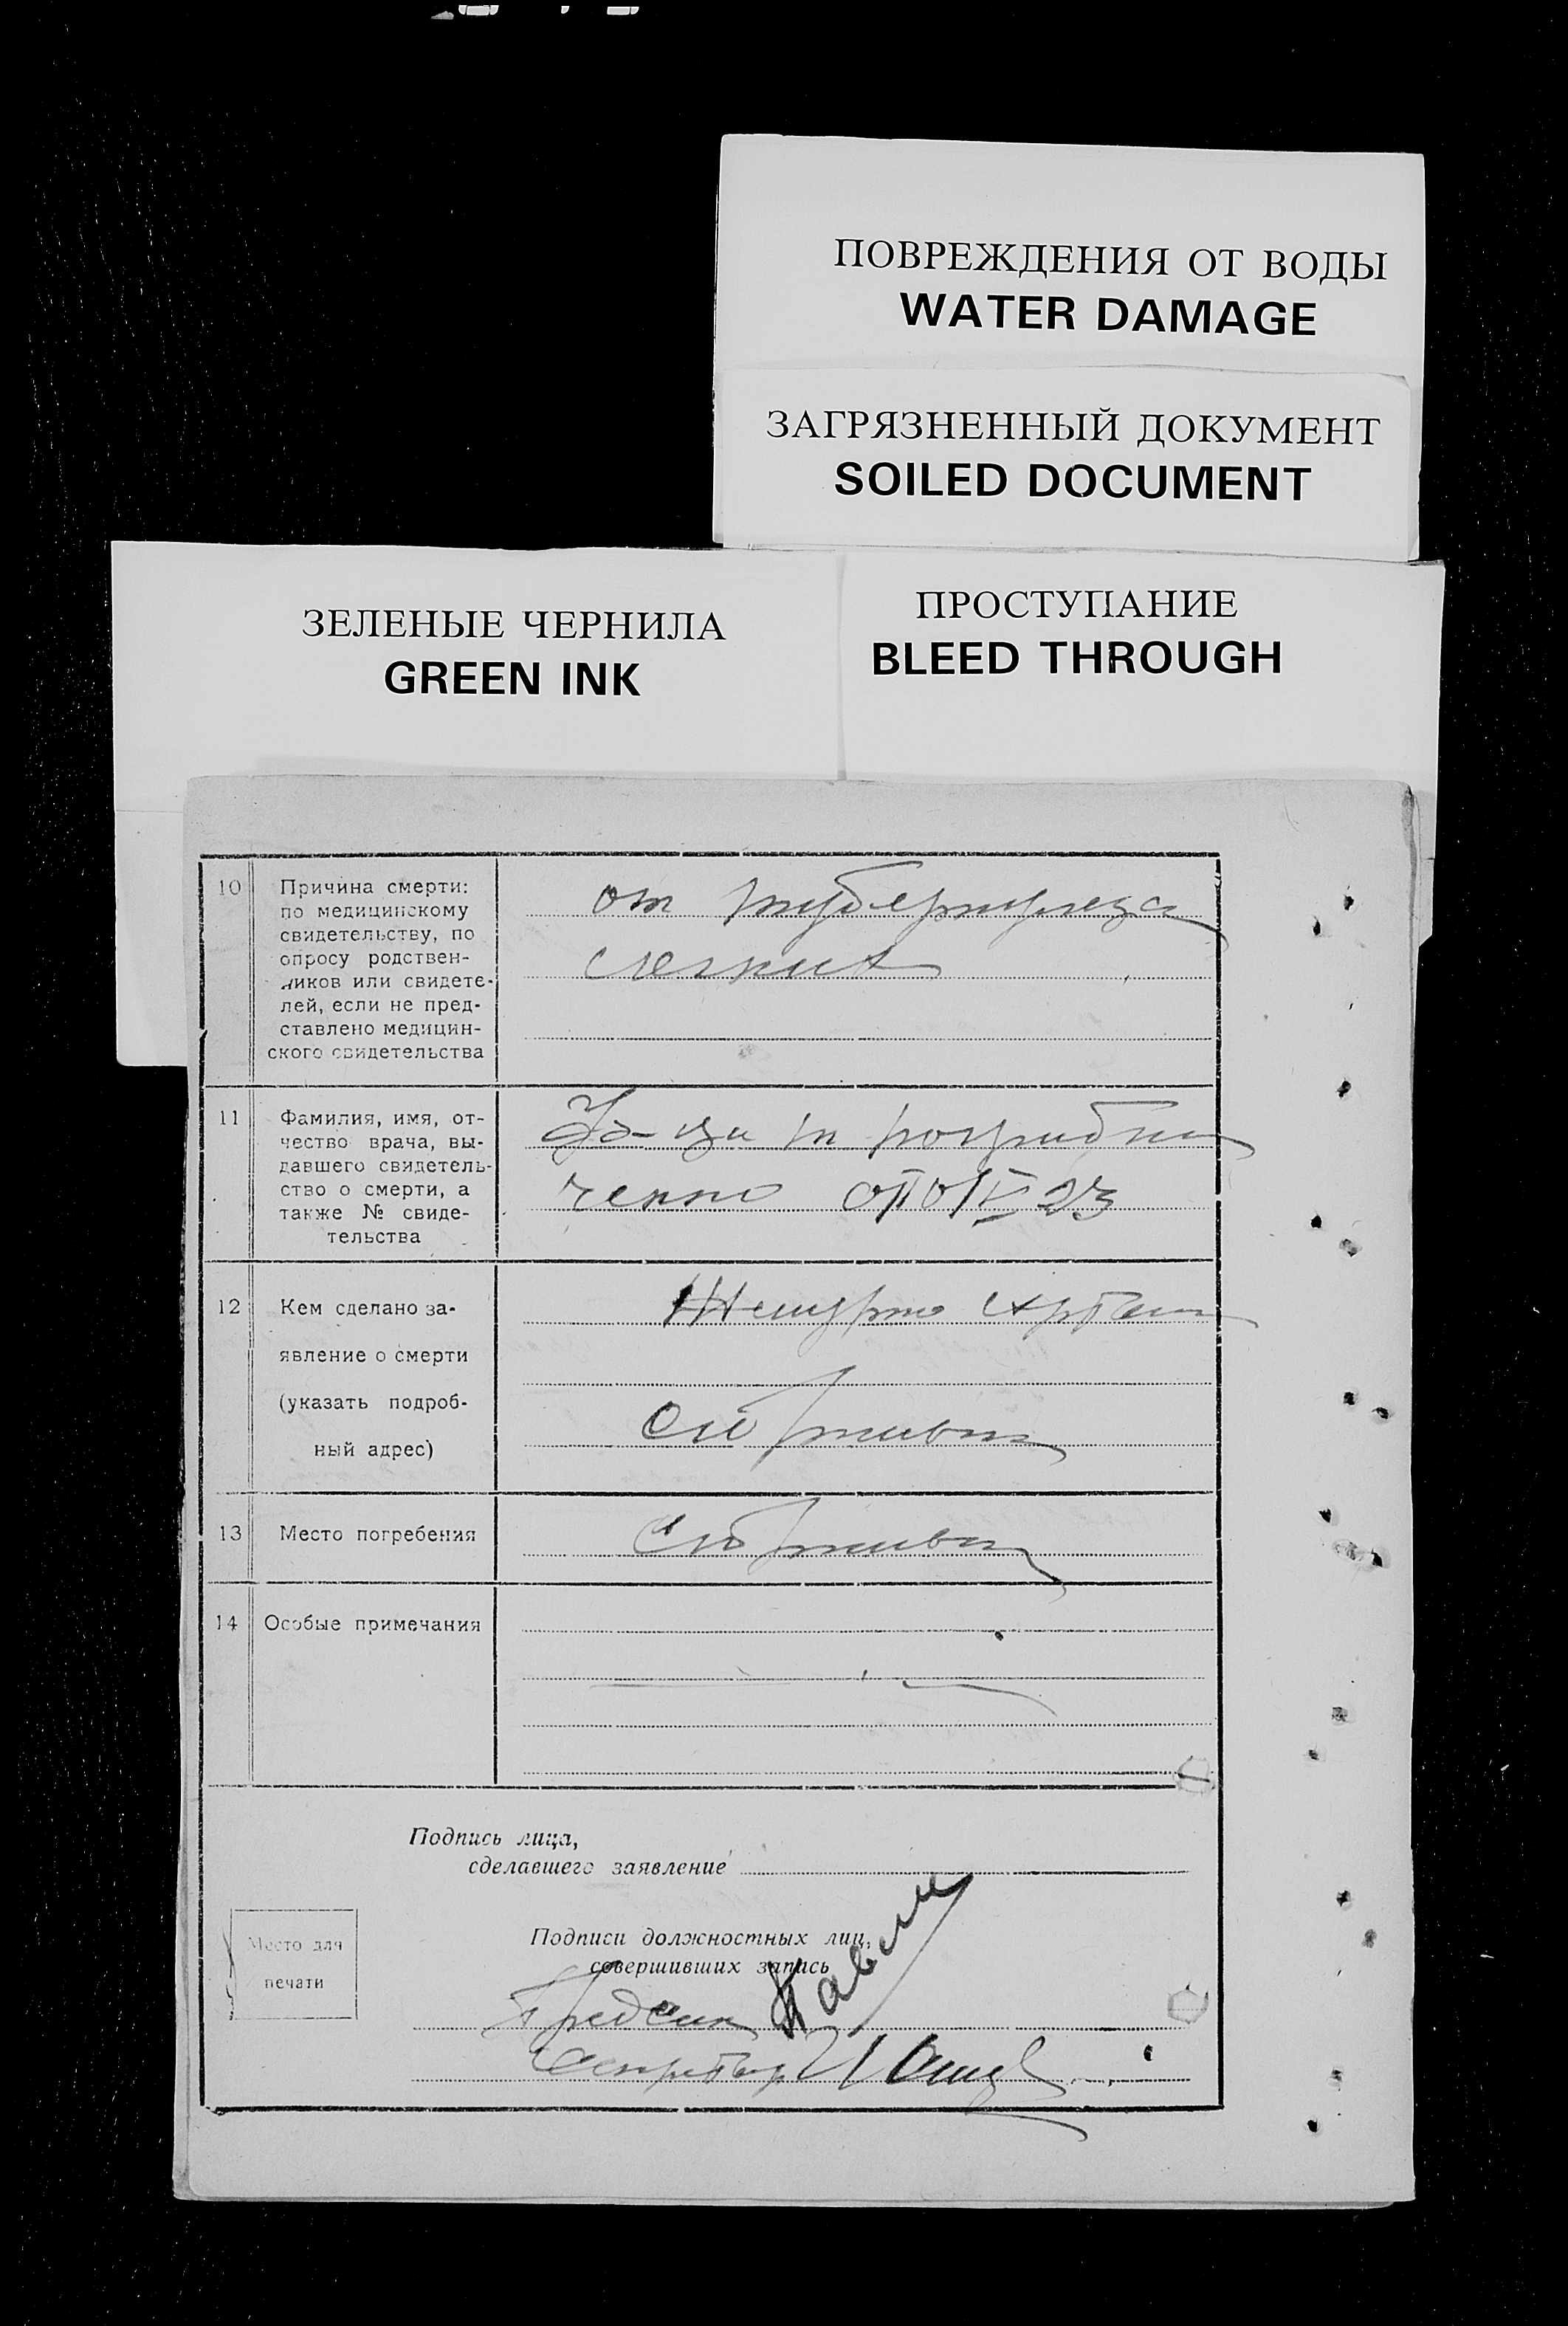 ПОВРЕЖДЕНИЯ ОТ ВОДЫ
WATER DAMAGE
ЗАГРЯЗНЕННЫЙ ДОКУМЕНТ
SOILED DOCUMENT
ЗЕЛЕНЫЕ ЧЕРНИЛА
GREEN INK
ПРОСТУПАНИЕ
BLEED THROUGH
10
Причина смерти:
по медицинскому
свидетельству, по
опросу родствен-
ников или свидете-
лей, если не пред-
ставлено медицин-
ского свидетельства
от туберкулеза
легких
11
Фамилия, имя, от-
чество врача, вы-
давшего свидетель-
ство о смерти, а
также № свиде-
тельства
23
12
Кем сделано за-
явление о смерти
(указать подроб-
ный адрес)
13
Место погребения
14
Особые примечания
Подпись лица,
сделавшего заявление
Место для
печати
Подписи должностных лиц,
совершивших запись
Предсик
Секретар